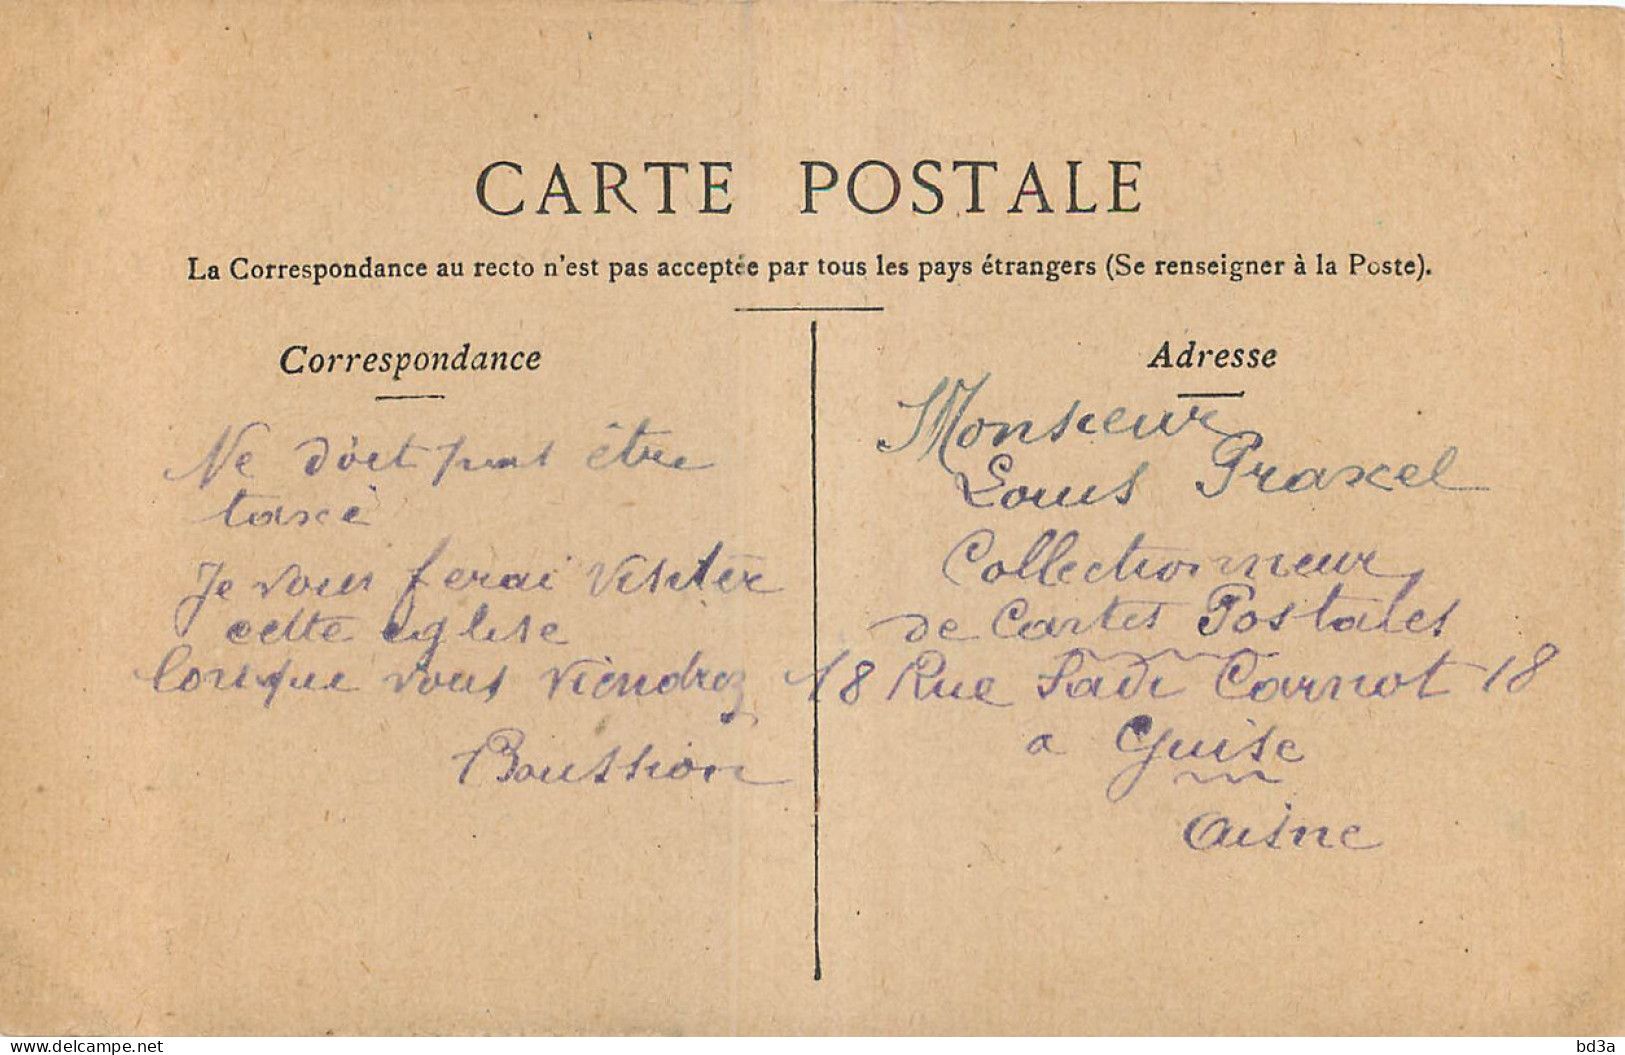 CARTE POSTALE
La Correspondance au recto n'est pas acceptée par tous les pays étrangers (Se renseigner à la Poste).
Correspondance
Ne doit pas être
taxé
Je vous ferai visiter
cette eglise
lorsque vous viendrez
Boussion
Adresse
Monsieur
Louis Praxel
Collectionneur
de Cartes Postales
18 Rue Sadi Carnot 18
a Guise
Aisne
www.delcampe.net
bd3a